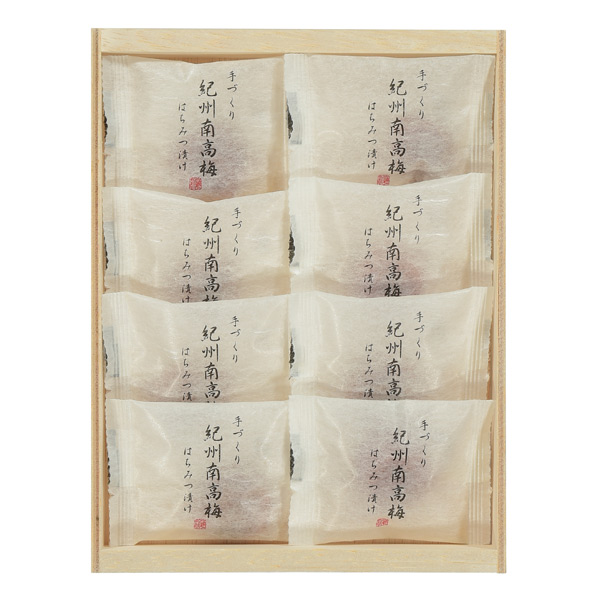 手づくり
紀州南高梅
はちみつ漬け
手づくり
紀州南高梅
はちみつ漬け
手づくり
紀州南高梅
はちみつ漬け
手づくり
紀州南高梅
はちみつ漬け
手づくり
紀州南高
はちみつ漬け
手づくり
紀州南高
はちみつ漬け
手づくり
紀州南高梅
はちみつ漬け
手づくり
紀州南高梅
はちみつ漬け